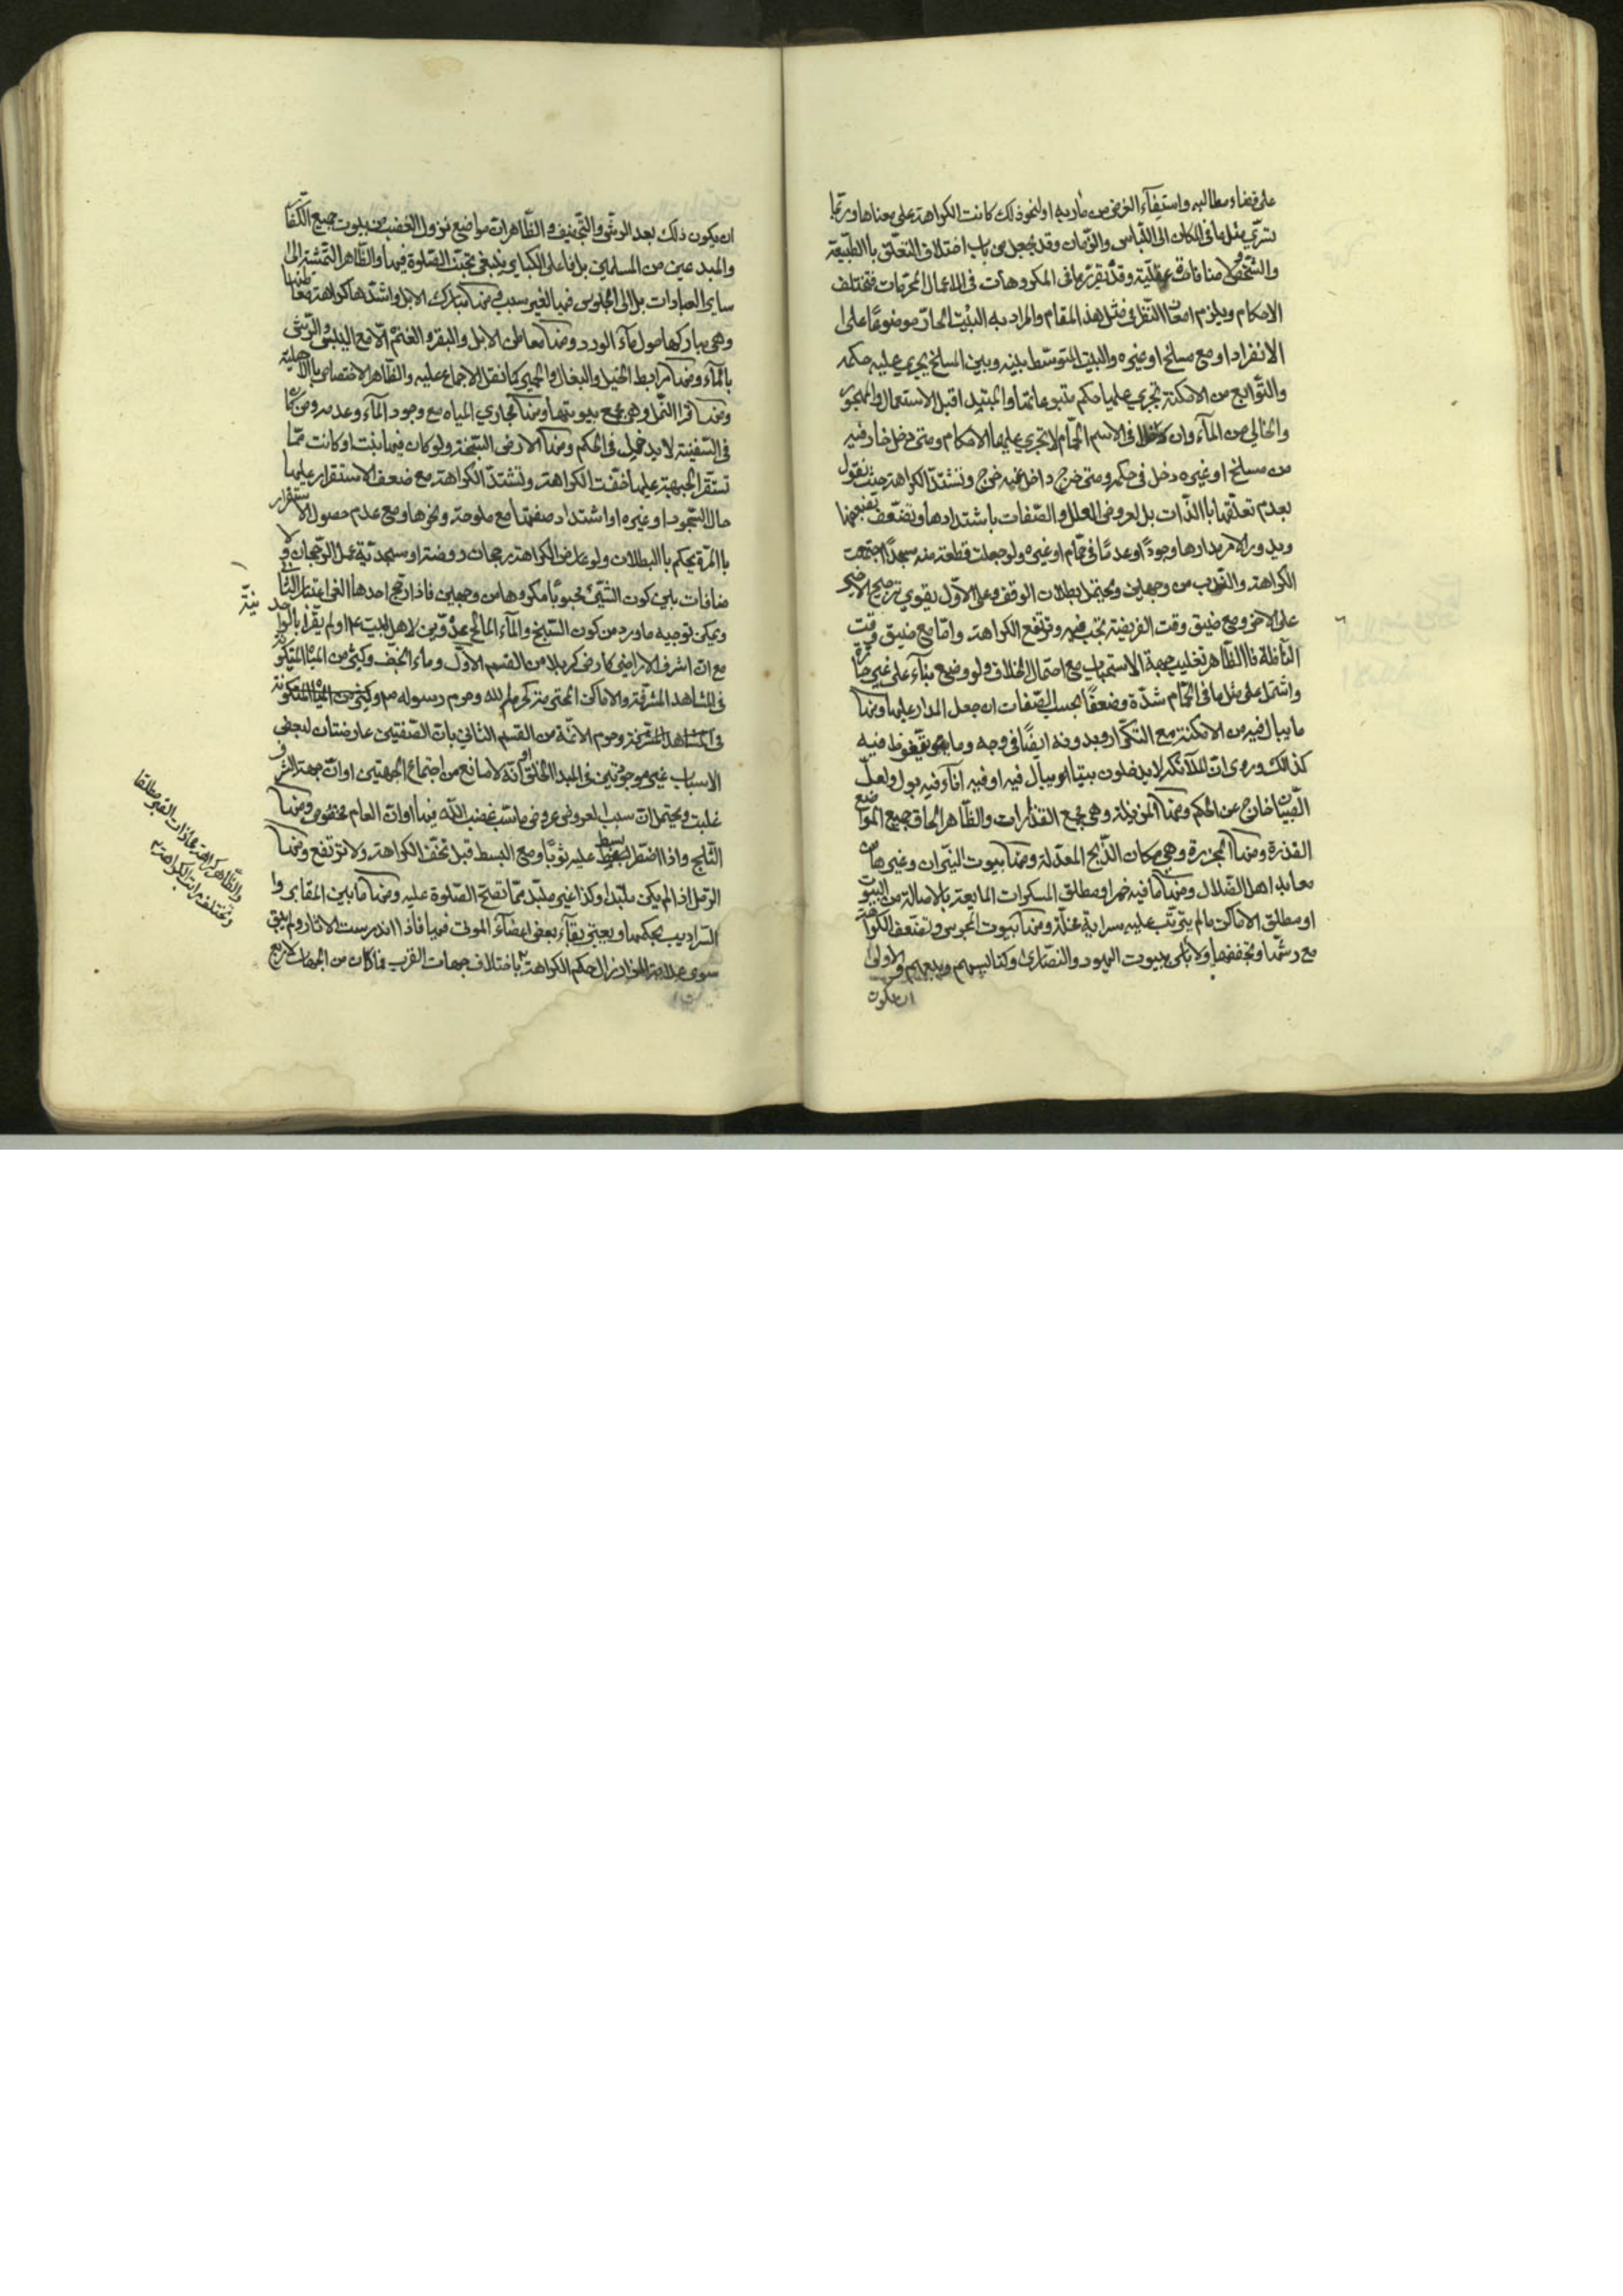 على قضاء مطالبه واستيفاء الغرض من مأربه او لنحو ذلك كانت الكراهة على معناها وربّما
تسرّي مثل ما في المكان الى اللّباس والزّمان وقد يجعل من باب اختلاف التعلّق باالطّبيعة
والشّخص ولا منافاة عقليّة وقد يقرّر ما في المكروهات في الاعمال المحرّمات فتختلف
الاحكام ويلزم امعان النّظر في مثل هذا المقام والمراد به البيت الحارّ موضوعًا على
الانفراد او مع مسلخ او غيره والبيت المتوسّط بينه وبين المسلخ يجري عليه حكمه
والتّوابع من الامكنة تجري عليها حكم متبوعاتها والمبتدء قبل الاستعمال والمهجور
والخالي من المآء وان دخل في الاسم الحمّام لا تجري عليها الاحكام ومتى دخل خارج فيه
من مسلخ او غيره دخل في حكمه ومتى خرج داخل عنه خرج وتشتدّ الكراهة حيث نقول
بعدم تعلّقها باالذّات بل لعروض العلل والصّفات باشتدادها وتضعّف بضعفها
ويدور الامر مدارها وجودًا وعدمًا في حمّام او غيره ولو جعلت قطعة منه مسجدًا اجتمعت
الكراهة والنّدب من وجهين ويحتمل بطلان الوقف وعلى الاوّل يقوى ترجيح الاخير
على الاخر ومع ضيق وقت الفريضة تجب فيه وترتفع الكراهة وامّا مع ضيق وقت
النّافلة فاالظّاهر تغليب جهة الاستحباب مع احتمال الخلاف ولو وضع بنآء على غير
واشتمل على مثل ما في الحمّام شدّة وضعفًا بحسب الصّفات ان جعل المدار عليها ومنها
ما يبال فيه من الامكنة مع التكرار وبدونه ايضًا في وجه وما يتغوّط فيه
كذالك وروى انّ الملآئكة لا يدخلون بيتا يبال فيه او فيه انآء فيه بول ولعلّ
خارج عن الحكم ومنها المزبلة وهي مجمع القذارات والظّاهر الحاق جميع المواضع
القذرة ومنها المجزرة وهي مكان الذّبح المعدّ له ومنها بيوت النيّران وغيرها من
معابد اهل الضّلال ومنها ما فيه خمر او مطلق المسكرات المايعة بالاصالة من البيوت
او مطلق الاماكن ما لم يترتّب عليه سراية ومنها بيوت المجوس وتضعّف الكراهة
مع رشّها وتجفيفها ولا باس ببيوت اليهود والنّصارى وكنايسهم وبيعهم والاولى
ان يكون
ان يكون ذلك بعد الرشّ والتّجفيف والظّاهر انّ مواضع نزول الغضب من بيوت جميع الكفّار
والمبدعين من المسلمين بل على الكباير ينبغي تجنّب الصّلوة فيها والظّاهر التّمشية الى
ساير العبادات بل الى الجلوس فيها لغير سبب ومنها مبارك الابل واشدّها كراهة معاطنها
وهي مباركها حول مآء الورد ومنها معاطن الابل والبقر والغنم الّا مع اليبس والرّشّ
بالمآء ومنها مرابط الخيل والبغال والحمير كما نقل الاجماع عليه والظّاهر الاختصاص باالاهليّة
ومنها قرا النّمل وهي مجمع بيوتها ومنها مجاري المياه مع وجود المآء وعدمه ومن كان
في السّفينة لا يدخل في الحكم ومنها الارض السّبخة ولو كان فيها نبت او كانت ممّا
تستقرّ الجبهة عليها خفّت الكراهة وتشتدّ الكراهة مع ضعف الاستقرار عليها
حال السّجود او غيره او اشتداد صفتها مع ملوحة ونحوها ومع عدم حصول الاستقرار
باالمرّة يحكم باالبطلان ولو عارض الكراهة رجحان روضة او مسجديّة عمل الرّجحان ولا
منافات بين كون الشّيئ محبوبًا مكروها من وجهين فاذا رجّح احدها الغى اعتبار الثّاني
ويمكن توجيه ما ورد من كون السّبخ والمآء المالح عدوّين لاهل البيت ع او لم يقرّا بالواحدانيّة
مع انّ اشرف الاراضي كارض كربلا من القسم الاوّل ومآء النّجف وكثير من المياه المتكوّنة
في المشاهد المشرّفة والاماكن المحترمة كحرم الله وحرم رسوله ص
وحرم الائمّة من القسم الثّاني بانّ الصّفتين عارضتان لبعض
الاسباب غير موجودتين في المبدء الخلق او انّه لا مانع من اجتماع الجهتين او انّ جهة الشّرف
غلبت ويحتمل انّ سبب العروض عروض ما سبّب غضب اللّه فيها او انّ العام مخصوص ومنها
الثّلج واذا اضطرّ بسط عليه ثوبًا ومع البسط قيل تخفّ الكراهة ولا ترتفع ومنها
الرّمل اذا لم يكن ملبّدا وكذا غير ملبّد ممّا تصحّ الصّلوة عليه ومنها ما بين المقابر وا
السّراديب بحكمها ويعتبر بقآء بعض اعضآء الموتى فيها فاذا اندرست الاثار ولم يبق
سوى زال حكم الكراهة باختلاف جهات القرب فما كان من الجهات الاربع
والظّاهر كراهة محاذات القبر مطلقا
وتختلف مراتب الكراهة